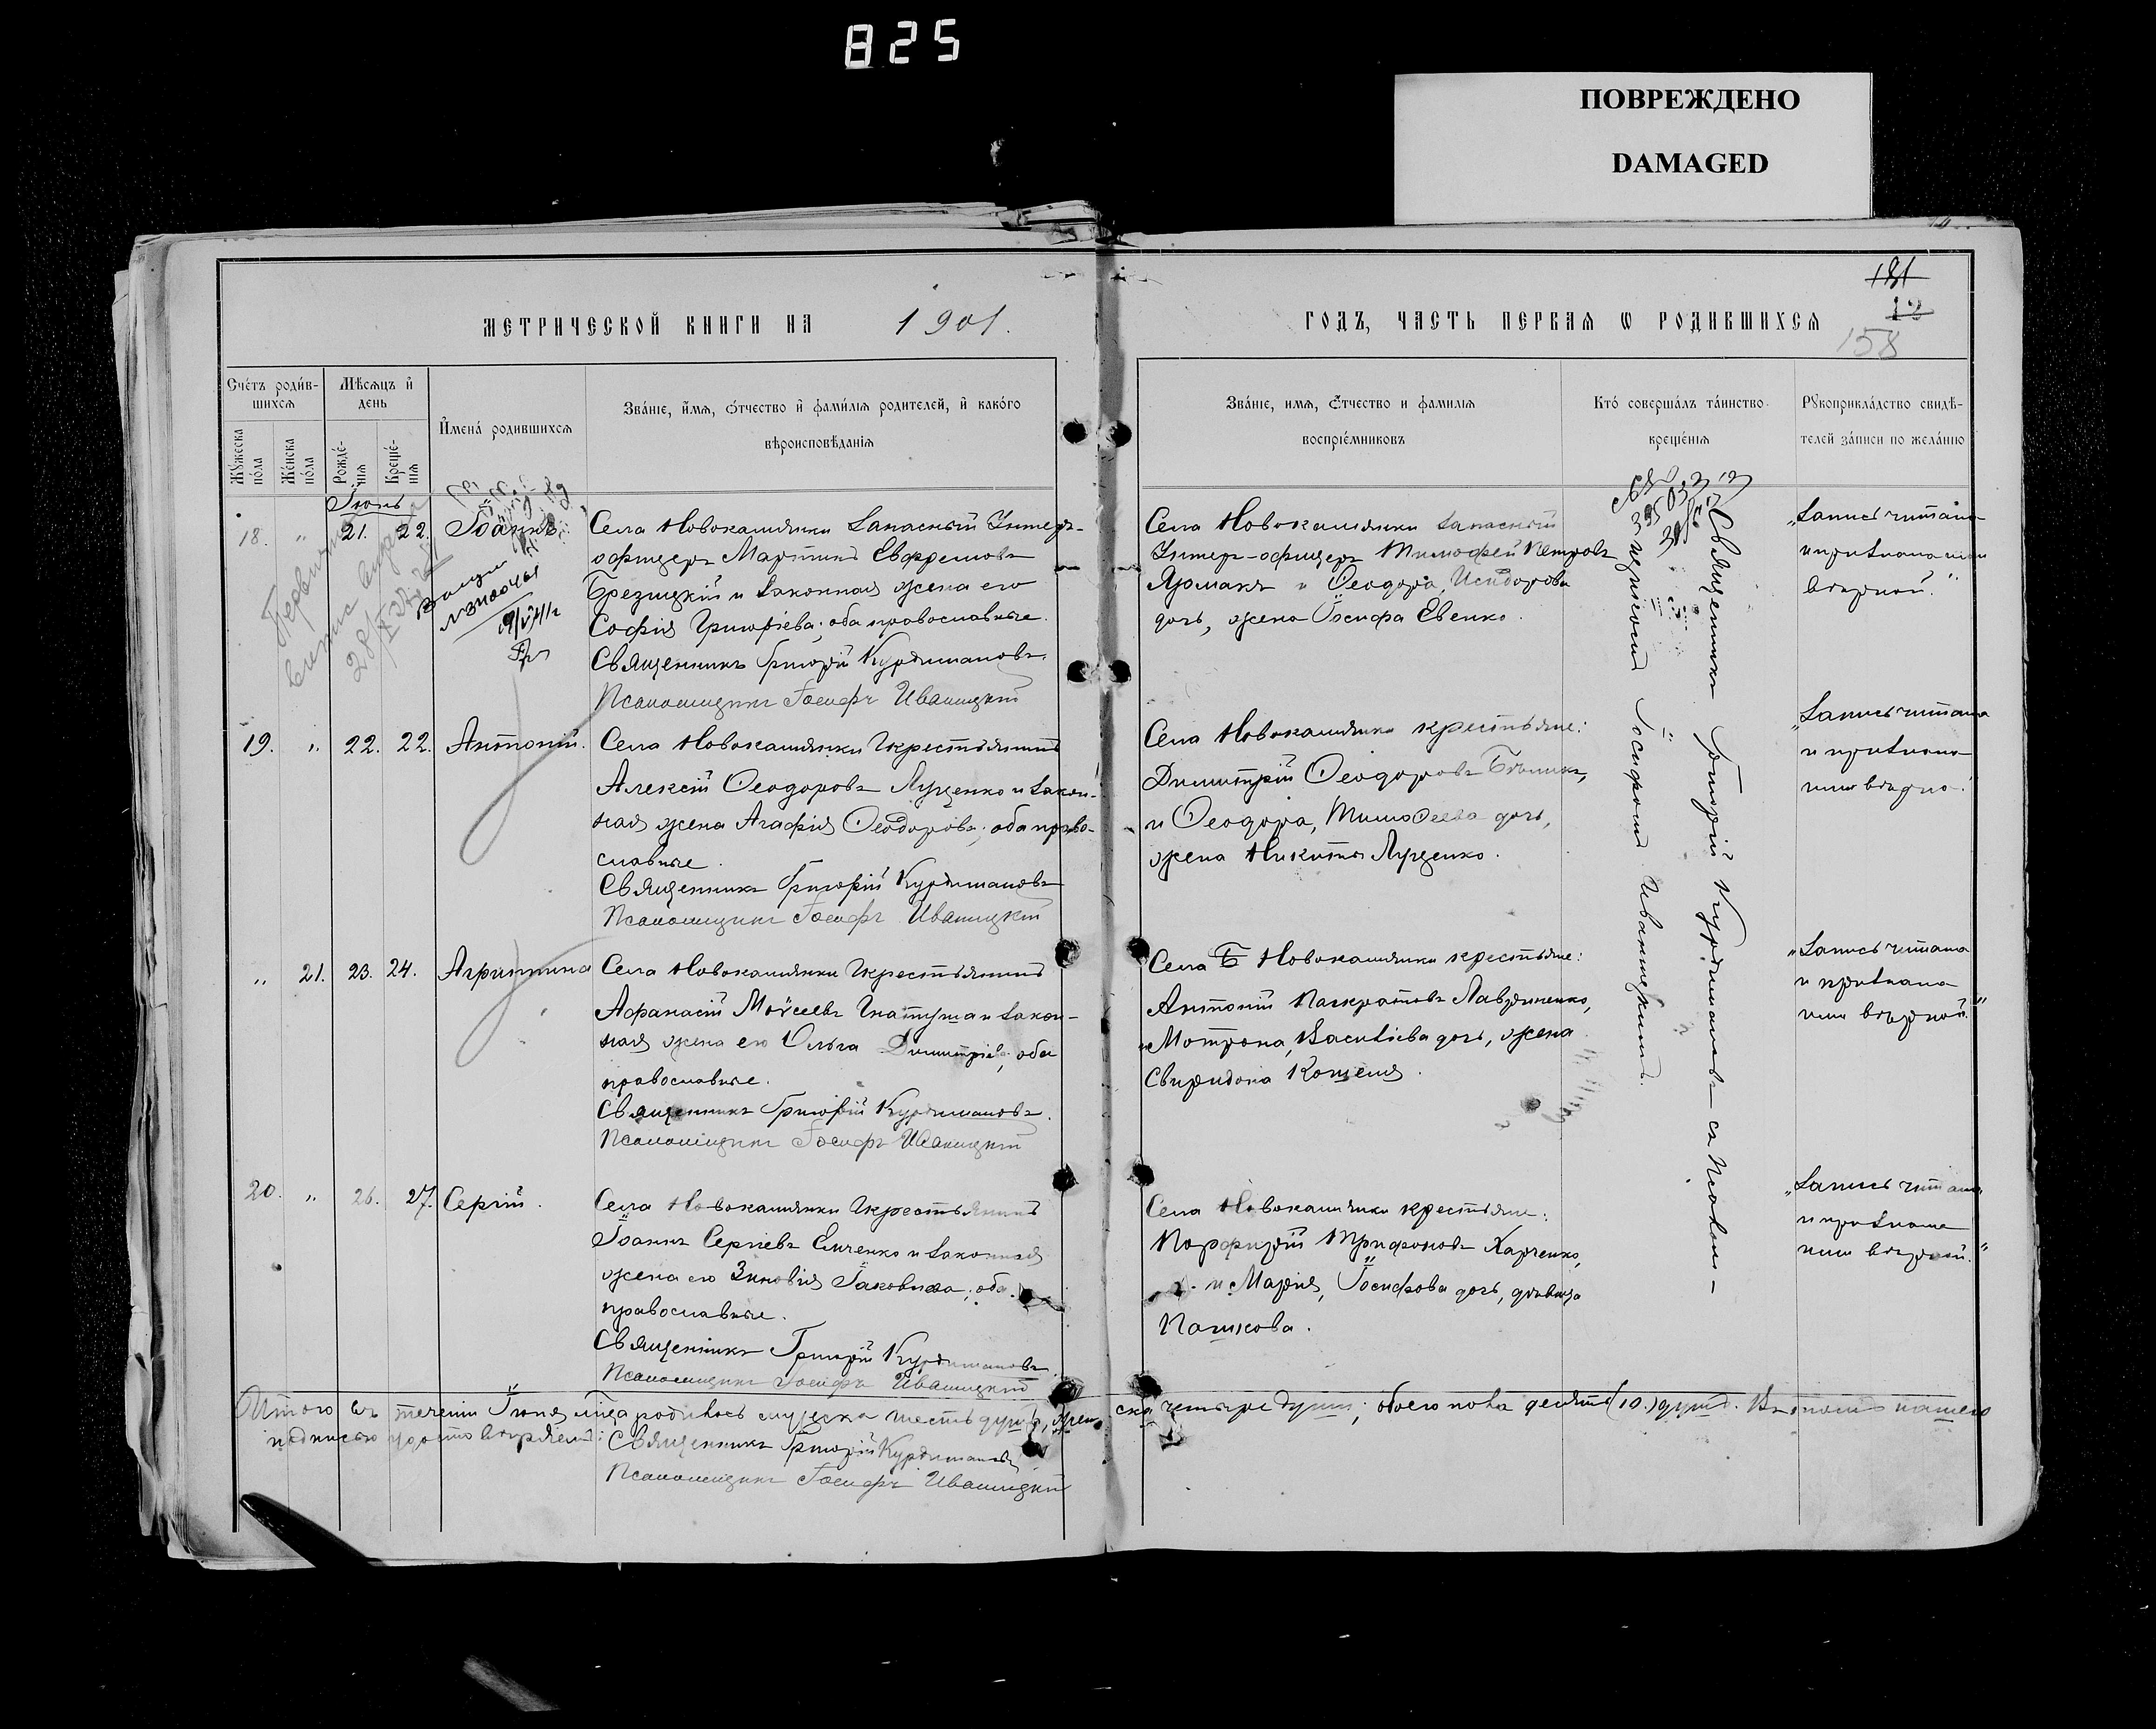 825
ПОВРЕЖДЕНО
DAMAGED
МЕТРИЧЕСКОЙ КНИГИ НА 1901.
ГОДЪ, ЧАСТЬ ПЕРВАЯ Ѡ РОДИВШИХСЯ
181
12
158
Счётъ роди́в-
шихся
Мѣсяцъ и҆
день
Мꙋжеска
по́ла
Же́нска
по́ла
Рожде́-
нія
Креще́-
нія
И҆мена̀ родившихся
Зва́ніе, и҆́мя, ѻ҆́тчество и҆ фами́лія родителей, и҆ како́го
вѣроисповѣ́данія
Зва́ніе, имя, ѻ҆́тчество и фамилія
воспріе́мниковъ
Кто̀ соверша́лъ та́инство
креще́нія
Рꙋкоприкла́дство свидѣ́-
телей за́писи по жела́нію
Іюнь
18. " 21. 22. Іоаннъ.
Села Новокамянки Запасный Унтеръ-
офицеръ Мартинъ Евфремовъ
Брезицкій и законная жена его
Софія Григоріева; оба православные.
Священникъ Григорій Курдимановъ.
Псаломщикъ Іосифъ Иваницкій
Села Новокамянки Запасный
Унтеръ-офицеръ Тимофей Петровъ
Ярмакъ и Ѳеодора, Исидорова
дочь, жена Іосифа Евенко.
Священникъ Григорій Курдимановъ съ Псалом-
щикомъ Іосифомъ Иваницкимъ.
"Запись читана
и признана нами
вѣрной."
19. " 22. 22. Антоній.
Села Новокамянки Крестьянинъ
Алексій Ѳеодоровъ Луценко и закон-
ная жена Агафія Ѳеодорова; оба право-
славные.
Священникъ Григорій Курдимановъ
Псаломщикъ Іосифъ Иваницкій
Села Новокамянки крестьяне:
Димитрій Ѳеодоровъ
и Ѳеодора, Тимоѳеева дочь,
жена Никиты Луценко.
"Запись читана
и признана
нами вѣрно
" 21. 23. 24. Агриппина
Села Новокамянки Крестьянинъ
Афанасій Моѵсеевъ Гнатуша и закон-
ная жена его Ольга Димитріева; оба
православные.
Священникъ Григорій Курдимановъ.
Псаломщикъ Іосифъ Иваницкій
Села Новокамянки крестьяне:
Антоній Панкратовъ Лавриненко,
и Мотрона, Василіева дочь, жена
Свиридона Кошеля.
"Запись читана
и признана
нами вѣрной."
20. " 26. 27. Сергій.
Села Новокамянки Крестьянинъ
Іоаннъ Сергіевъ Емченко и законная
жена его Зиновія Іаковлева; оба
православные.
Священникъ Григорій Курдимановъ
Псаломщикъ Іосифъ Иваницкій
Села Новокамянки крестьяне:
Порфирій Трифоновъ Харченко,
и Марія, Іосифова дочь, дѣвица
Пашкова.
"Запись читана
и признана
нами вѣрной."
Итого въ теченіи Іюня м-ца родилось мужеска шесть душъ, жен-
ска четыре души; обоего пола десять (10.) душъ. Въ томъ нашею
подписью удостовѣряемъ:
Священникъ Григорій Курдимановъ
Псаломщикъ Іосифъ Иваницкій